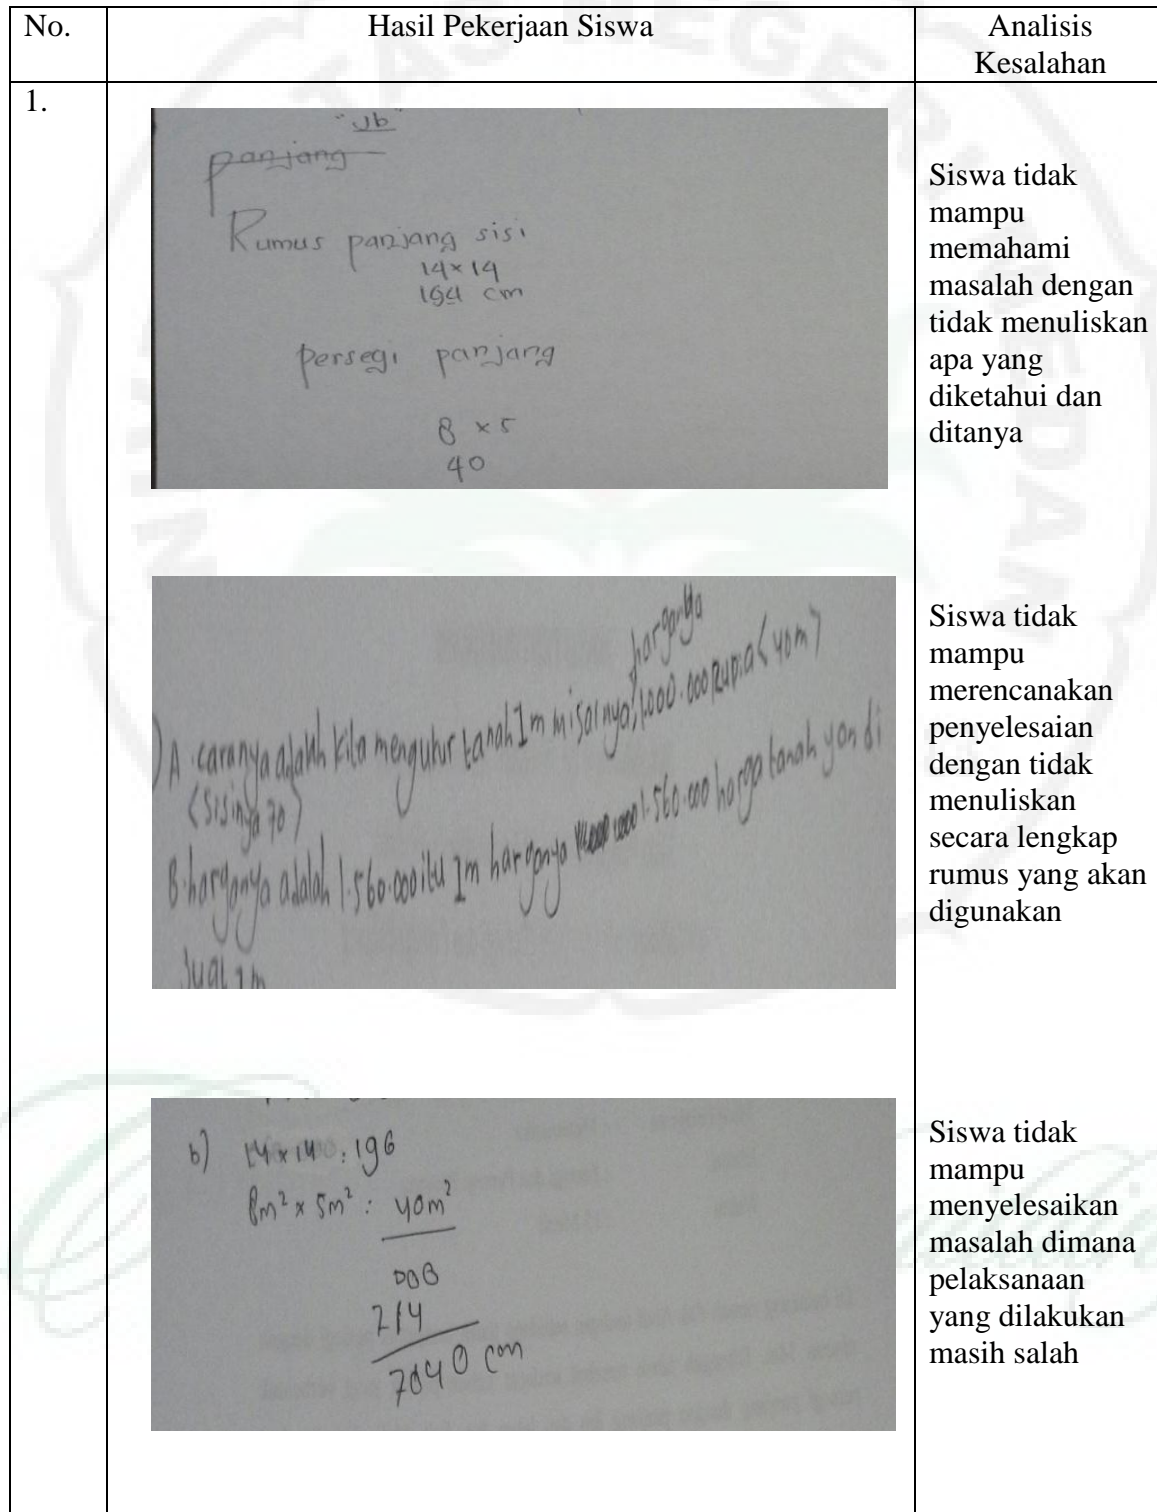 No.
Hasil Pekerjaan Siswa
Analisis
Kesalahan
1.
"Jb"
panjang
Rumus panjang sisi
14 × 14
194 cm
persegi panjang
8 × 5
40
Siswa tidak
mampu
memahami
masalah dengan
tidak menuliskan
apa yang
diketahui dan
ditanya
harganya
A. caranya adalah kita mengukur tanah 1m misalnya, 1.000.000 Rupia (40m)
(sisinya 70)
B. harganya adalah 1.560.000 itu 1m harganya 1.560.000 harga tanah yan di
Jual 1m
Siswa tidak
mampu
merencanakan
penyelesaian
dengan tidak
menuliskan
secara lengkap
rumus yang akan
digunakan
b) 14 x 14 : 196
8m² x 5m² : 40m²
000
214
7040 cm
Siswa tidak
mampu
menyelesaikan
masalah dimana
pelaksanaan
yang dilakukan
masih salah